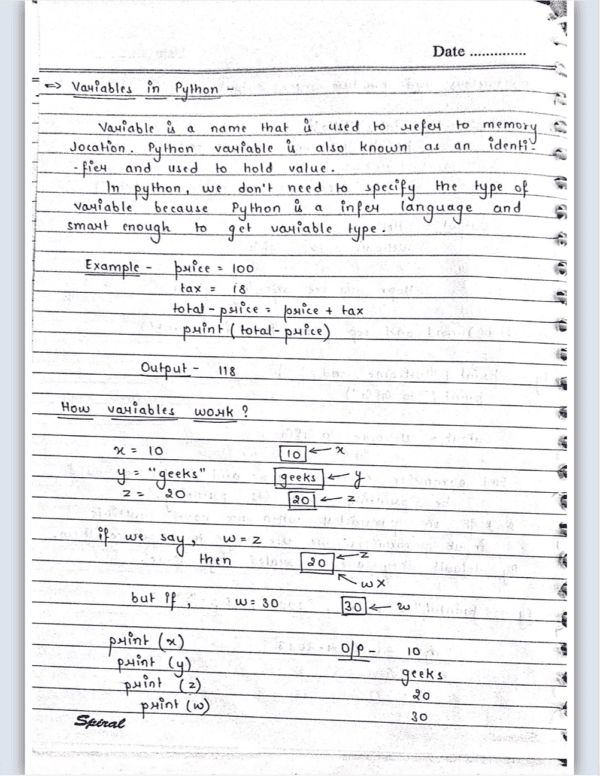 Date ..............
=> Variables in Python -
Variable is a name that is used to refer to memory
location. Python variable is also known as an identi-
-fier and used to hold value.
In python, we don't need to specify the type of
variable because Python is a infer language and
smart enough to get variable type.
Example - price = 100
tax = 18
total-price = price + tax
print (total-price)
Output - 118
How variables work ?
x = 10 10 ← x
y = "geeks" geeks ← y
z = 20 20 ← z
if we say, w = z
then 20 ← z
← w x
but if, w = 30 30 ← w
print (x) O/P - 10
print (y) geeks
print (z) 20
print (w) 30
Spiral